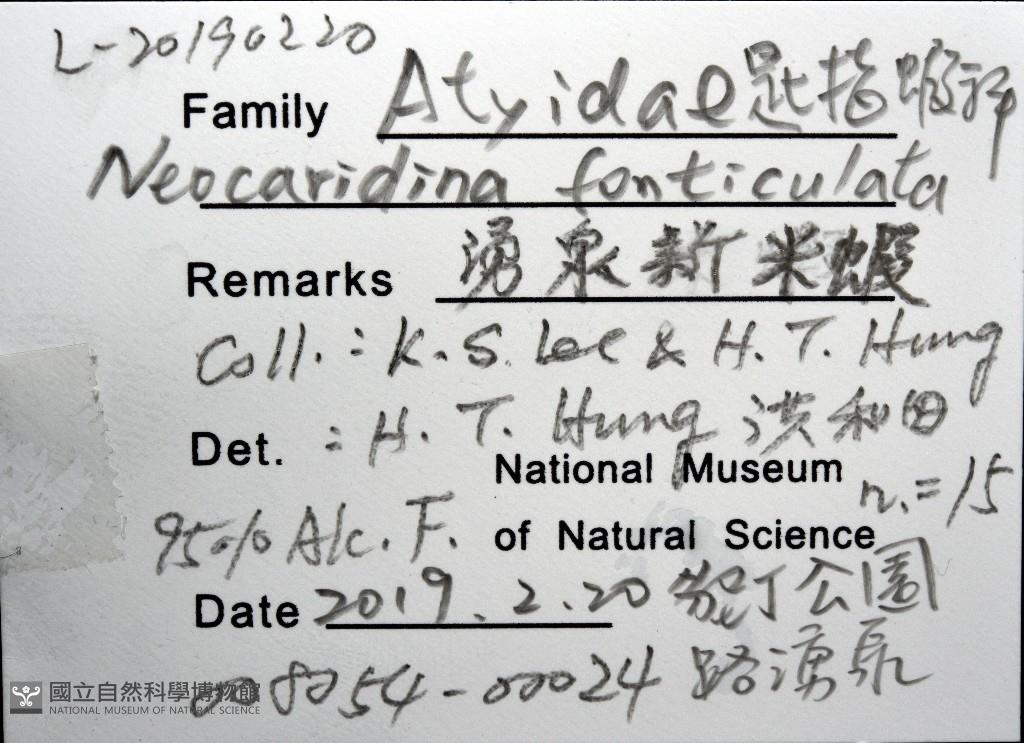 L-20190220
Family Atyidae 匙指蝦科
Neocaridina fonticulata
Remarks 湧泉新米蝦
Coll. : K. S. Lee & H. T. Hung
Det. : H. T. Hung 洪和田
National Museum n. = 15
95% Alc. F. of Natural Science
Date 2019. 2. 20 墾丁公園
008054-00024 路湧泉
國立自然科學博物館
NATIONAL MUSEUM OF NATURAL SCIENCE